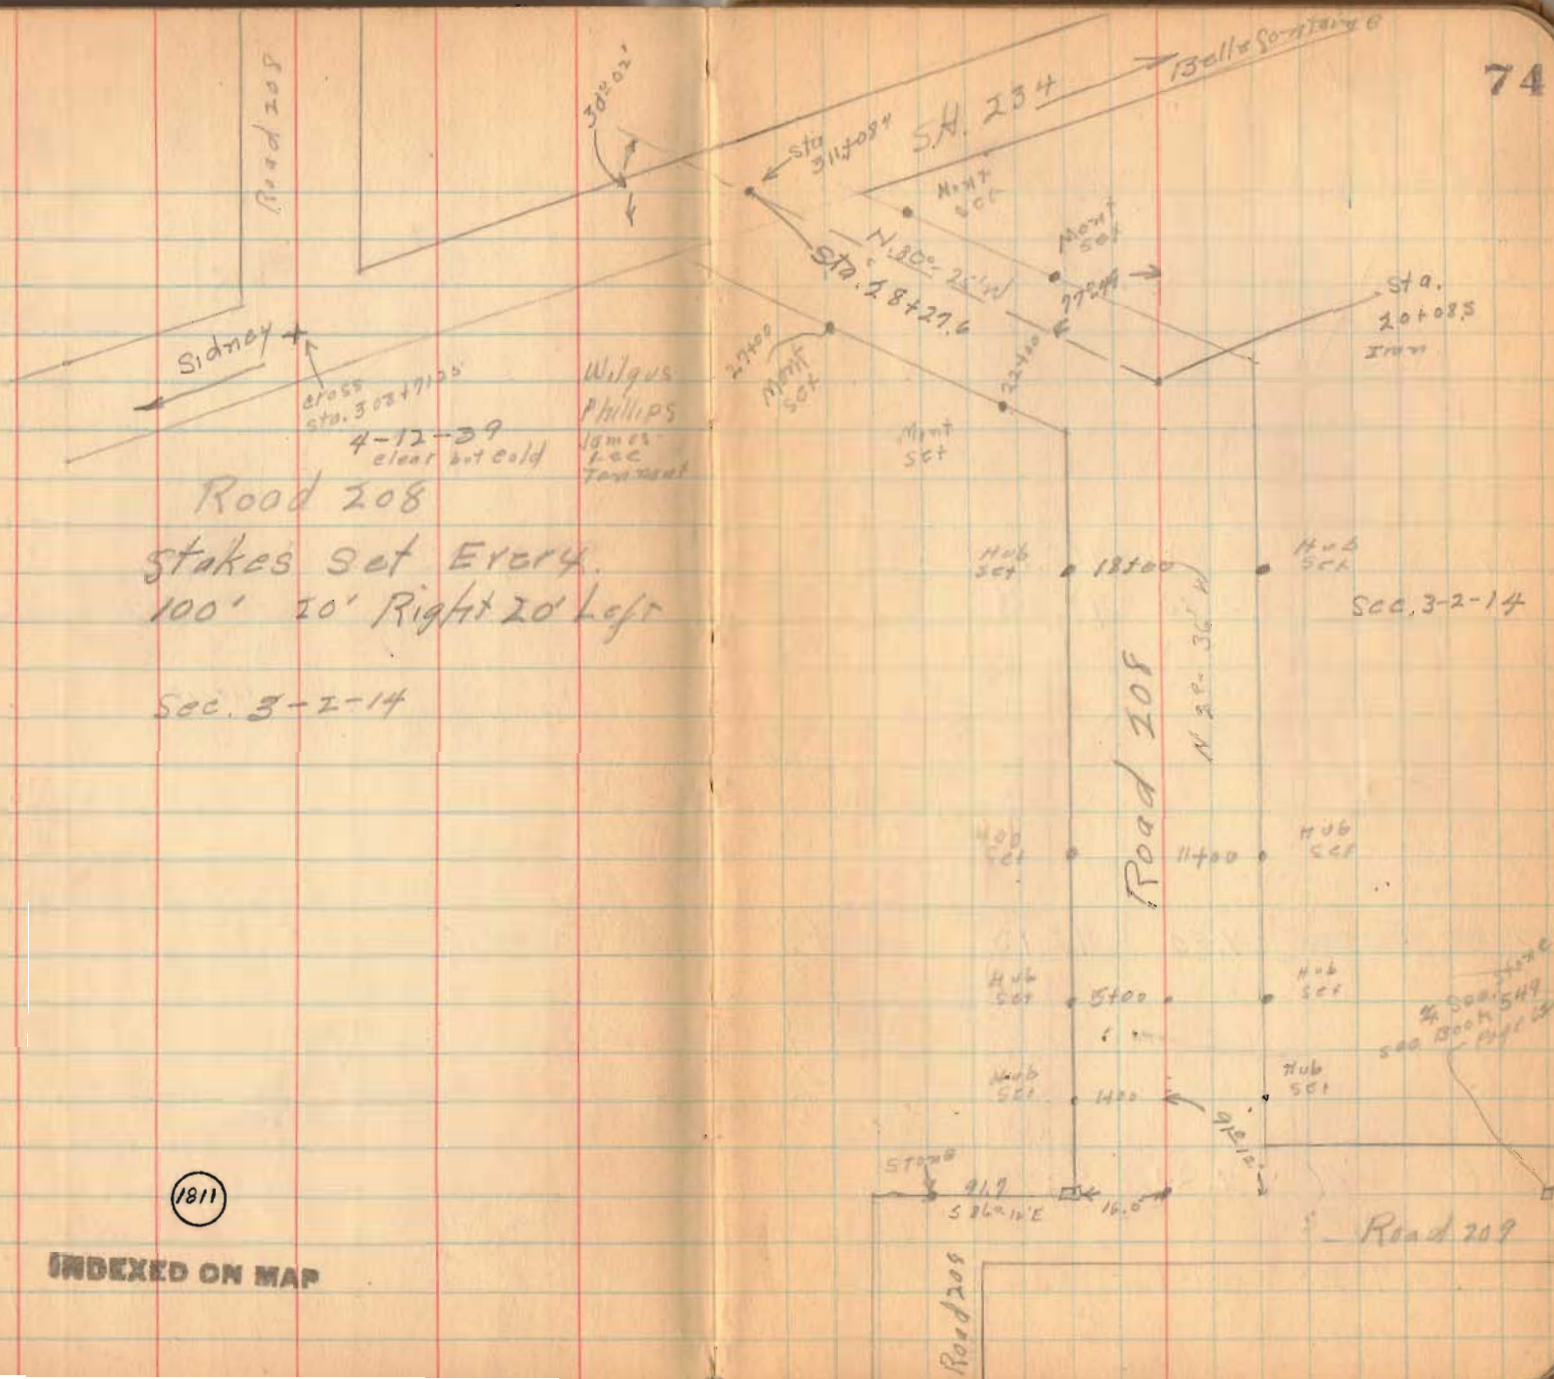 Road 208
Sidney
cross
sta. 308+71
4-12-39
clear but cold
Wilgus
Phillips
James
Lee
Tennant
Road 208
Stakes Set Every
100' 20' Right 20' Left
Sec. 3-2-14
1811
INDEXED ON MAP
74
Bellefontaine
S.H. 234
30°02'
Sta
311+08
Mont
Set
Mont
Set
N.80°
Sta. 28+27.6
Sta.
20+08.5
Iron
27+00
Mont
Set
22+00
Mont
Set
Hub
Set
18+00
Hub
Set
Sec. 3-2-14
N 2°-36' W
Road 208
Hub
Set
11+00
Hub
Set
Hub
Set
5+00
Hub
Set
stone
See
Book 549
Page
Hub
Set
1+00
Hub
Set
91°12'
Stone
91.7
S 86° E
16.0
Road 209
Road 208